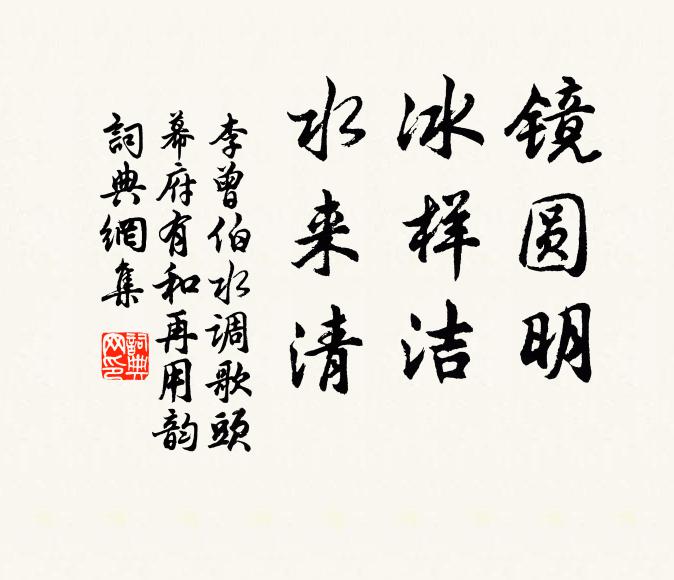 镜圆明
冰样洁
水来清
李曾伯水调歌頭
幕府有和再用韵
詞典網集
詞典
网印